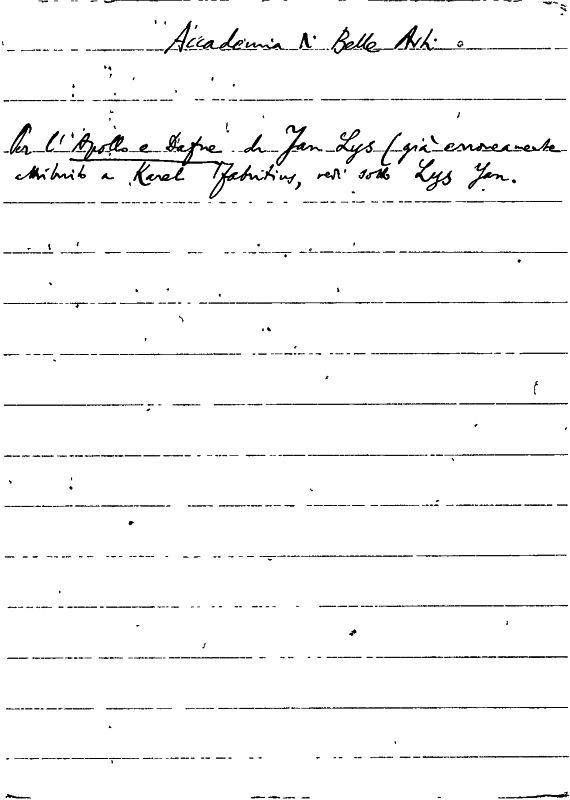 Accademia di Belle Arti.
Per l'"Apollo e Dafne" di Jan Lys (già erroneamente
attribuito a Karel Fabritius, vedi sotto Lys Jan.